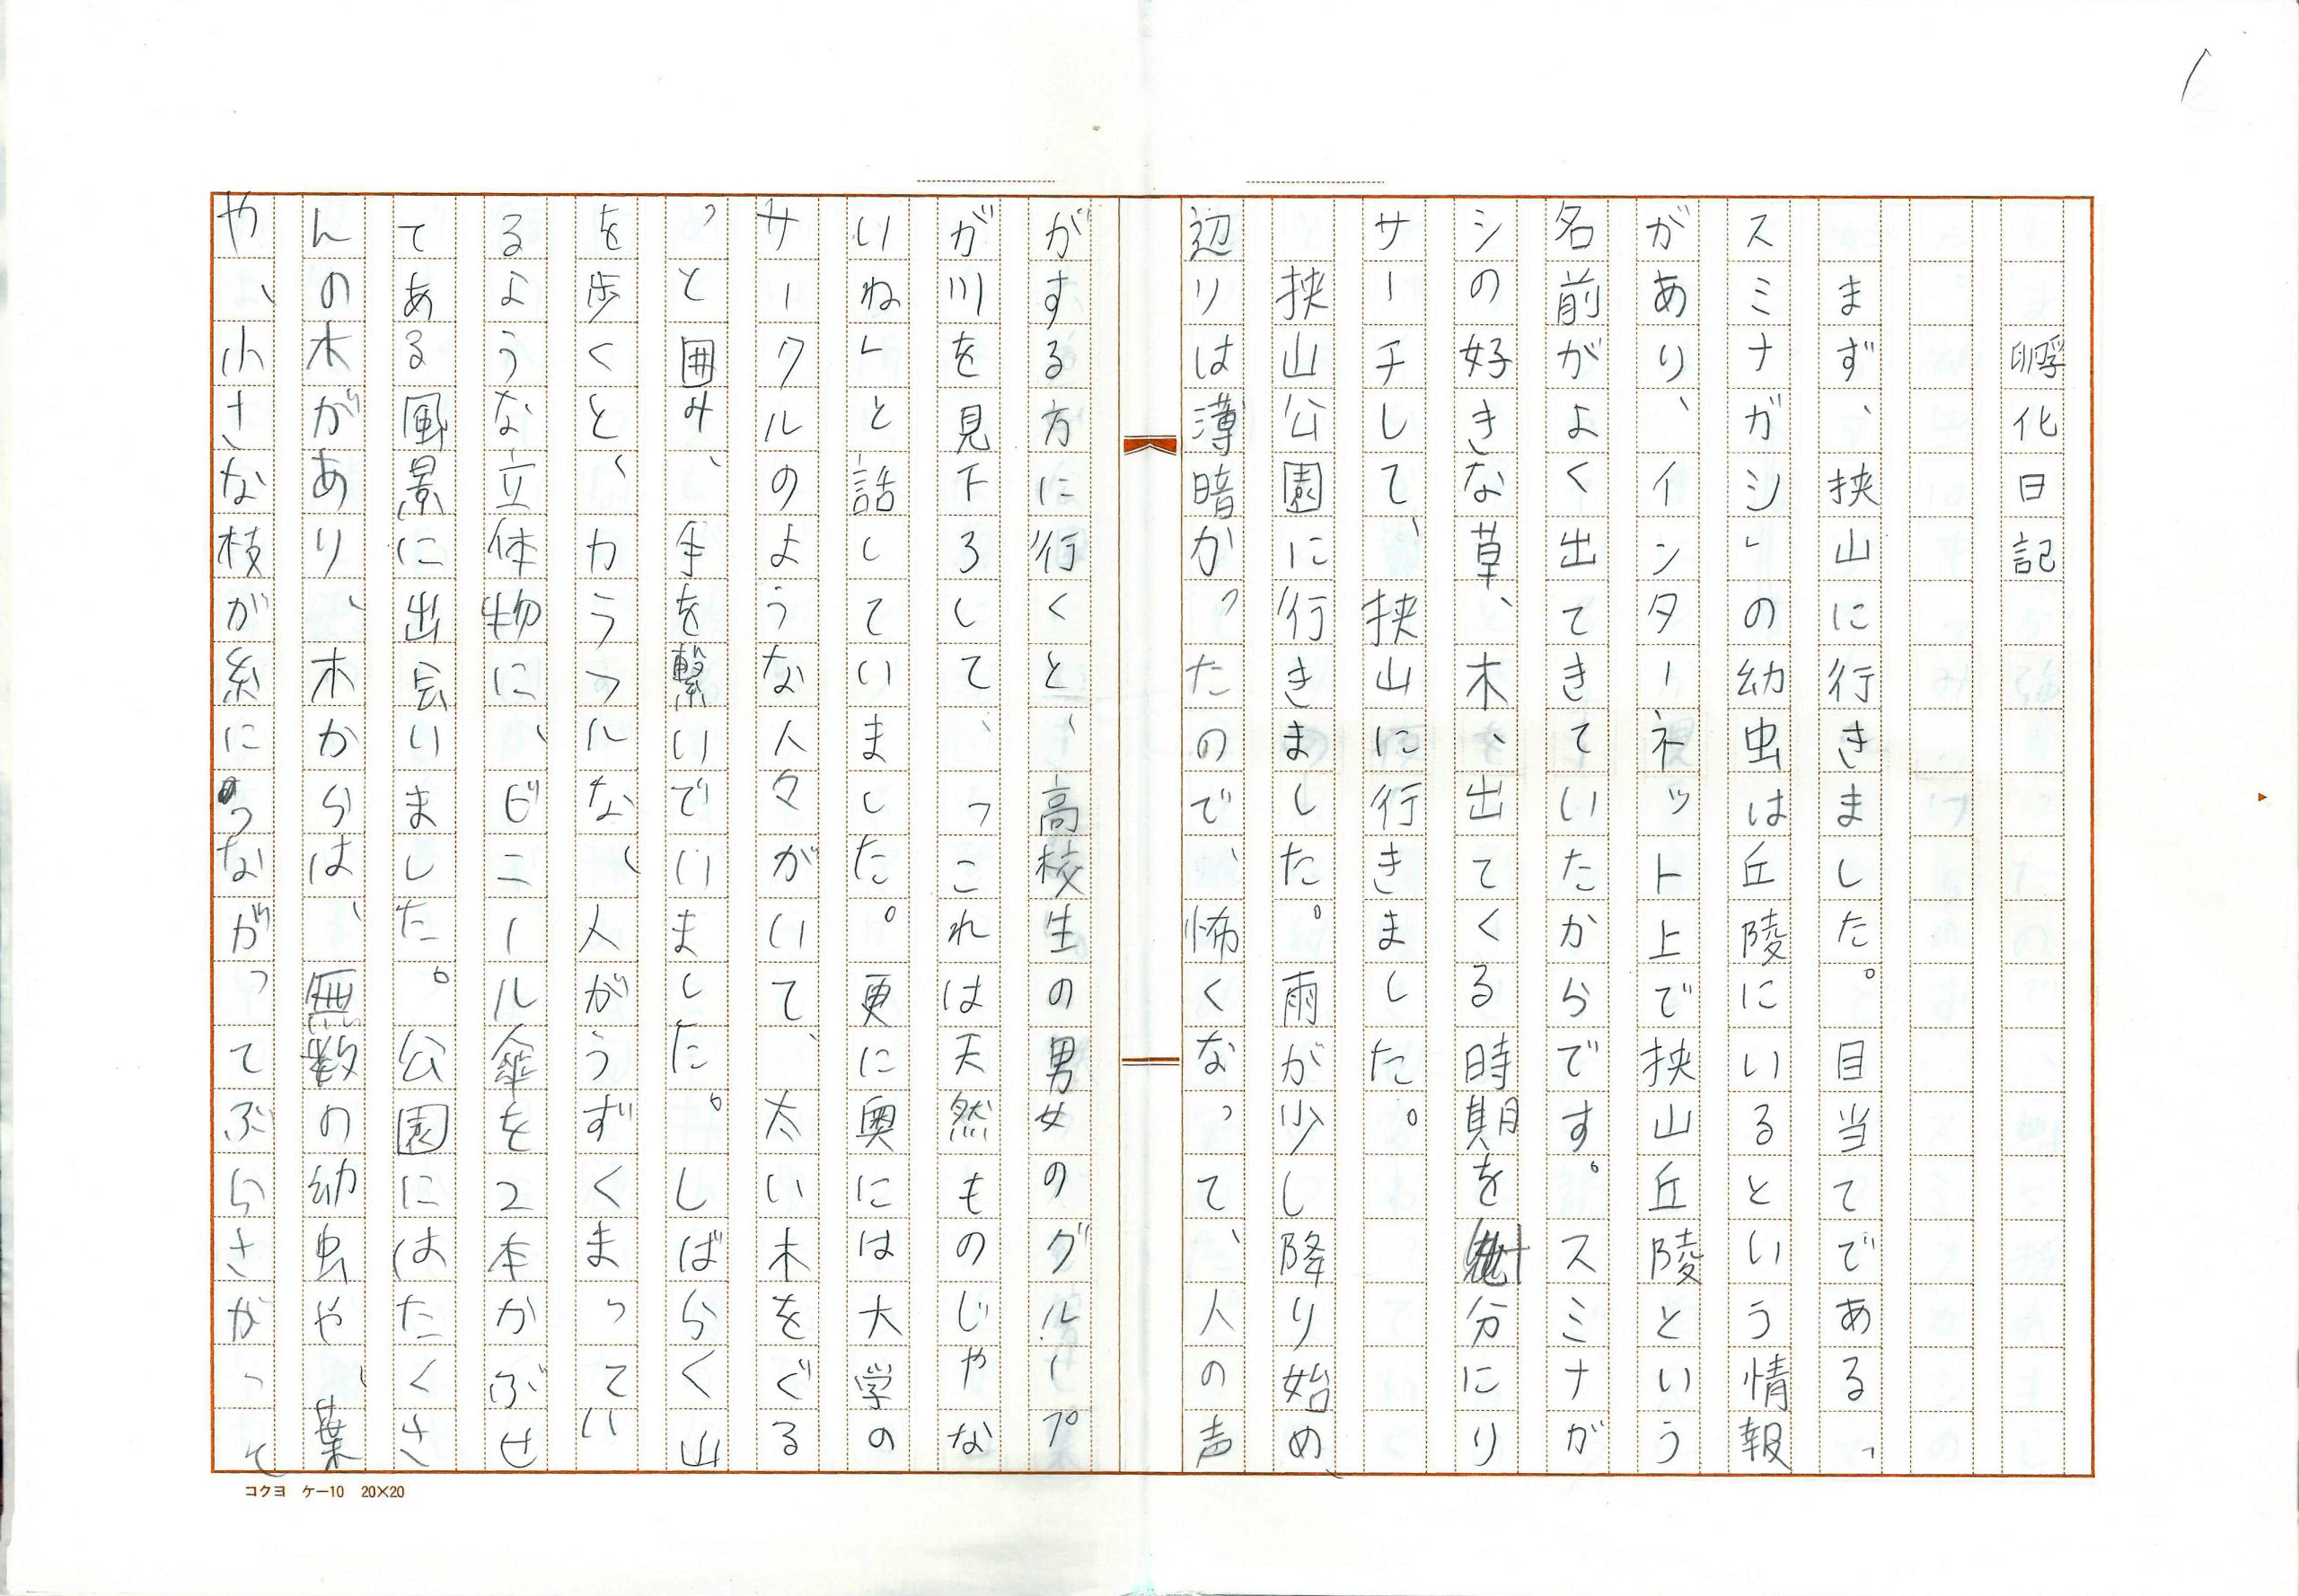 1
孵化日記
まず、挟山に行きました。目当てである「
スミナガシ」の幼虫は丘陵にいるという情報
があり、インターネット上で挟山丘陵という
名前がよく出てきていたからです。スミナガ
シの好きな草、木、出てくる時期を 分にリ
サーチして、挟山に行きました。
挟山公園に行きました。雨が少し降り始め、
辺りは薄暗かったので、怖くなって、人の声
がする方に行くと、高校生の男女のグループ
が川を見下ろして、「これは天然ものじゃな
いね」と話していました。更に奥には大学の
サークルのような人々がいて、太い木をぐる
っと囲み、手を繋いでいました。しばらく山
を歩くと、カラフルな、人がうずくまってい
るような立体物に、ビニール傘を2本かぶせ
てある風景に出会いました。公園にはたくさ
んの木があり、木からは、無数の幼虫や、葉
や、小さな枝が糸につながってぶらさがって
コクヨ ケ-10 20×20